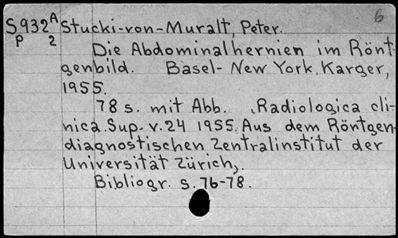 6
S932A Stucki-von-Muralt, Peter.
p 2
Die Abdominalhernien im Rönt-
genbild. Basel-New York, Karger,
1955.
78 s. mit Abb. (Radiologica cli-
nica. Sup. v.24 1955. Aus dem Röntgen-
diagnostischen Zentralinstitut der
Universität Zürich).
Bibliogr. s. 76-78.